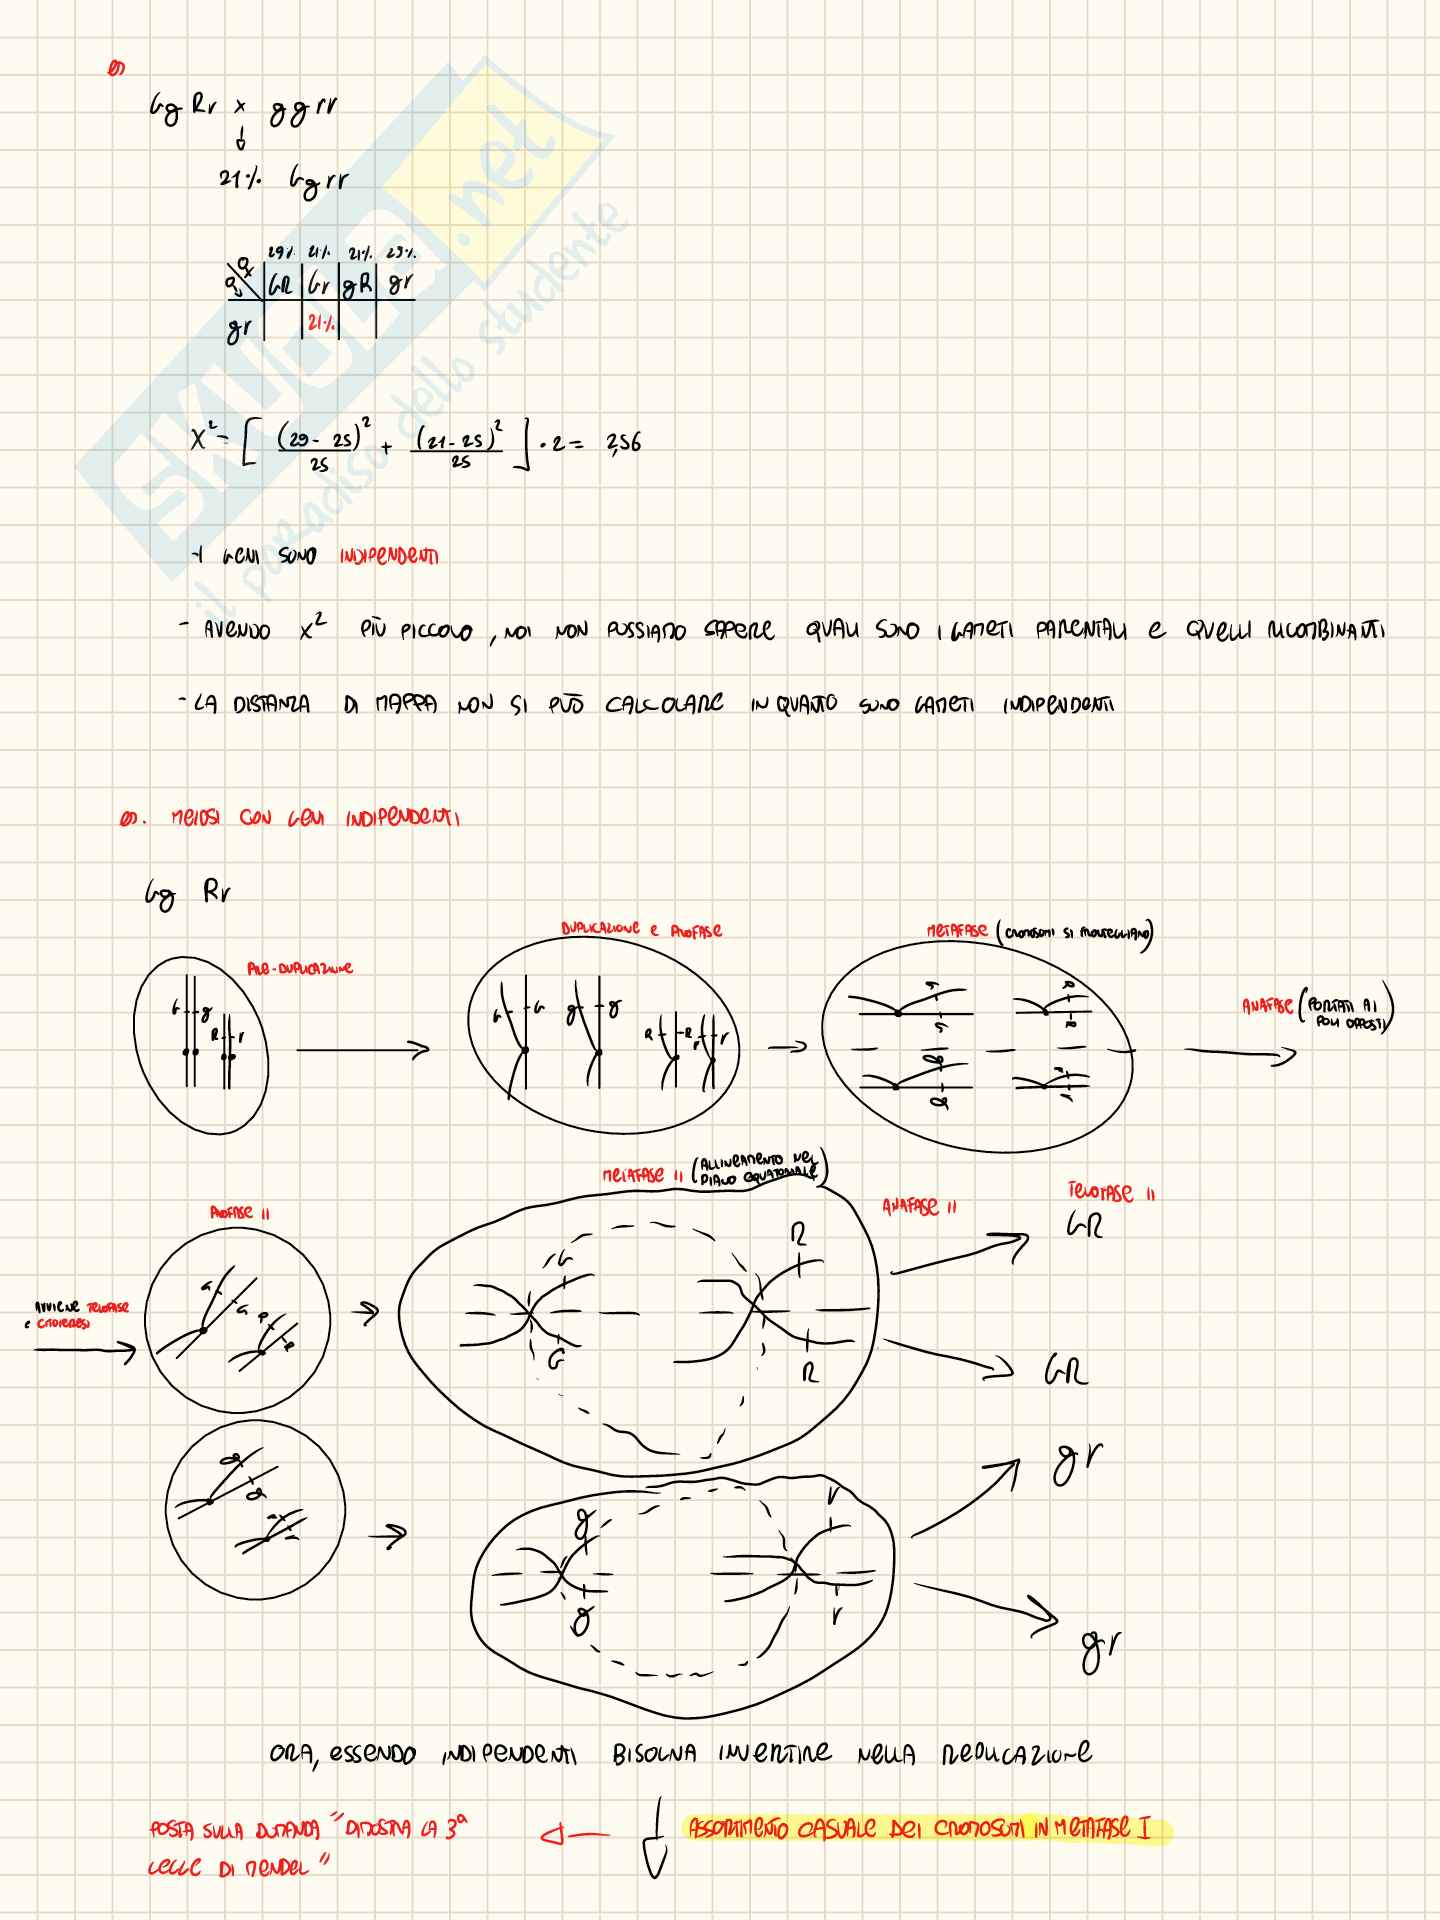 es
Gg Rr x ggrr
21% Ggrr
29% 21% 21% 29%
GR Gr gR gr
gr 21%
X² = [ (29 - 25)² / 25 + (21 - 25)² / 25 ] · 2 = 2,56
- I GENI SONO INDIPENDENTI
- AVENDO X² PIÙ PICCOLO, NOI NON POSSIAMO SAPERE QUALI SONO I GAMETI PARENTALI E QUELLI RICOMBINANTI
- LA DISTANZA DI MAPPA NON SI PUÒ CALCOLARE IN QUANTO SONO GAMETI INDIPENDENTI
es. MEIOSI CON GENI INDIPENDENTI
Gg Rr
PRE-DUPLICAZIONE
G g
R r
DUPLICAZIONE E PROFASE
G G g g
R R r r
METAFASE (CROMOSOMI SI FRONTEGGIANO)
G R
G R
g r
g r
ANAFASE (PORTATI AI
POLI OPPOSTI)
AVVIENE TELOFASE
E CITODIERESI
PROFASE II
G G R R
g g r r
METAFASE II (ALLINEAMENTO NEL
PIANO EQUATORIALE)
G R
G R
g r
g r
ANAFASE II
TELOFASE II
GR
GR
gr
gr
ORA, ESSENDO INDIPENDENTI BISOGNA INVERTIRE NELLA REPLICAZIONE
ASSORTIMENTO CASUALE DEI CROMOSOMI IN METAFASE I
POSTA SULLA DOMANDA "DIMOSTRA LA 3ª
LEGGE DI MENDEL"
SKUOLA.net
il paradiso dello studente